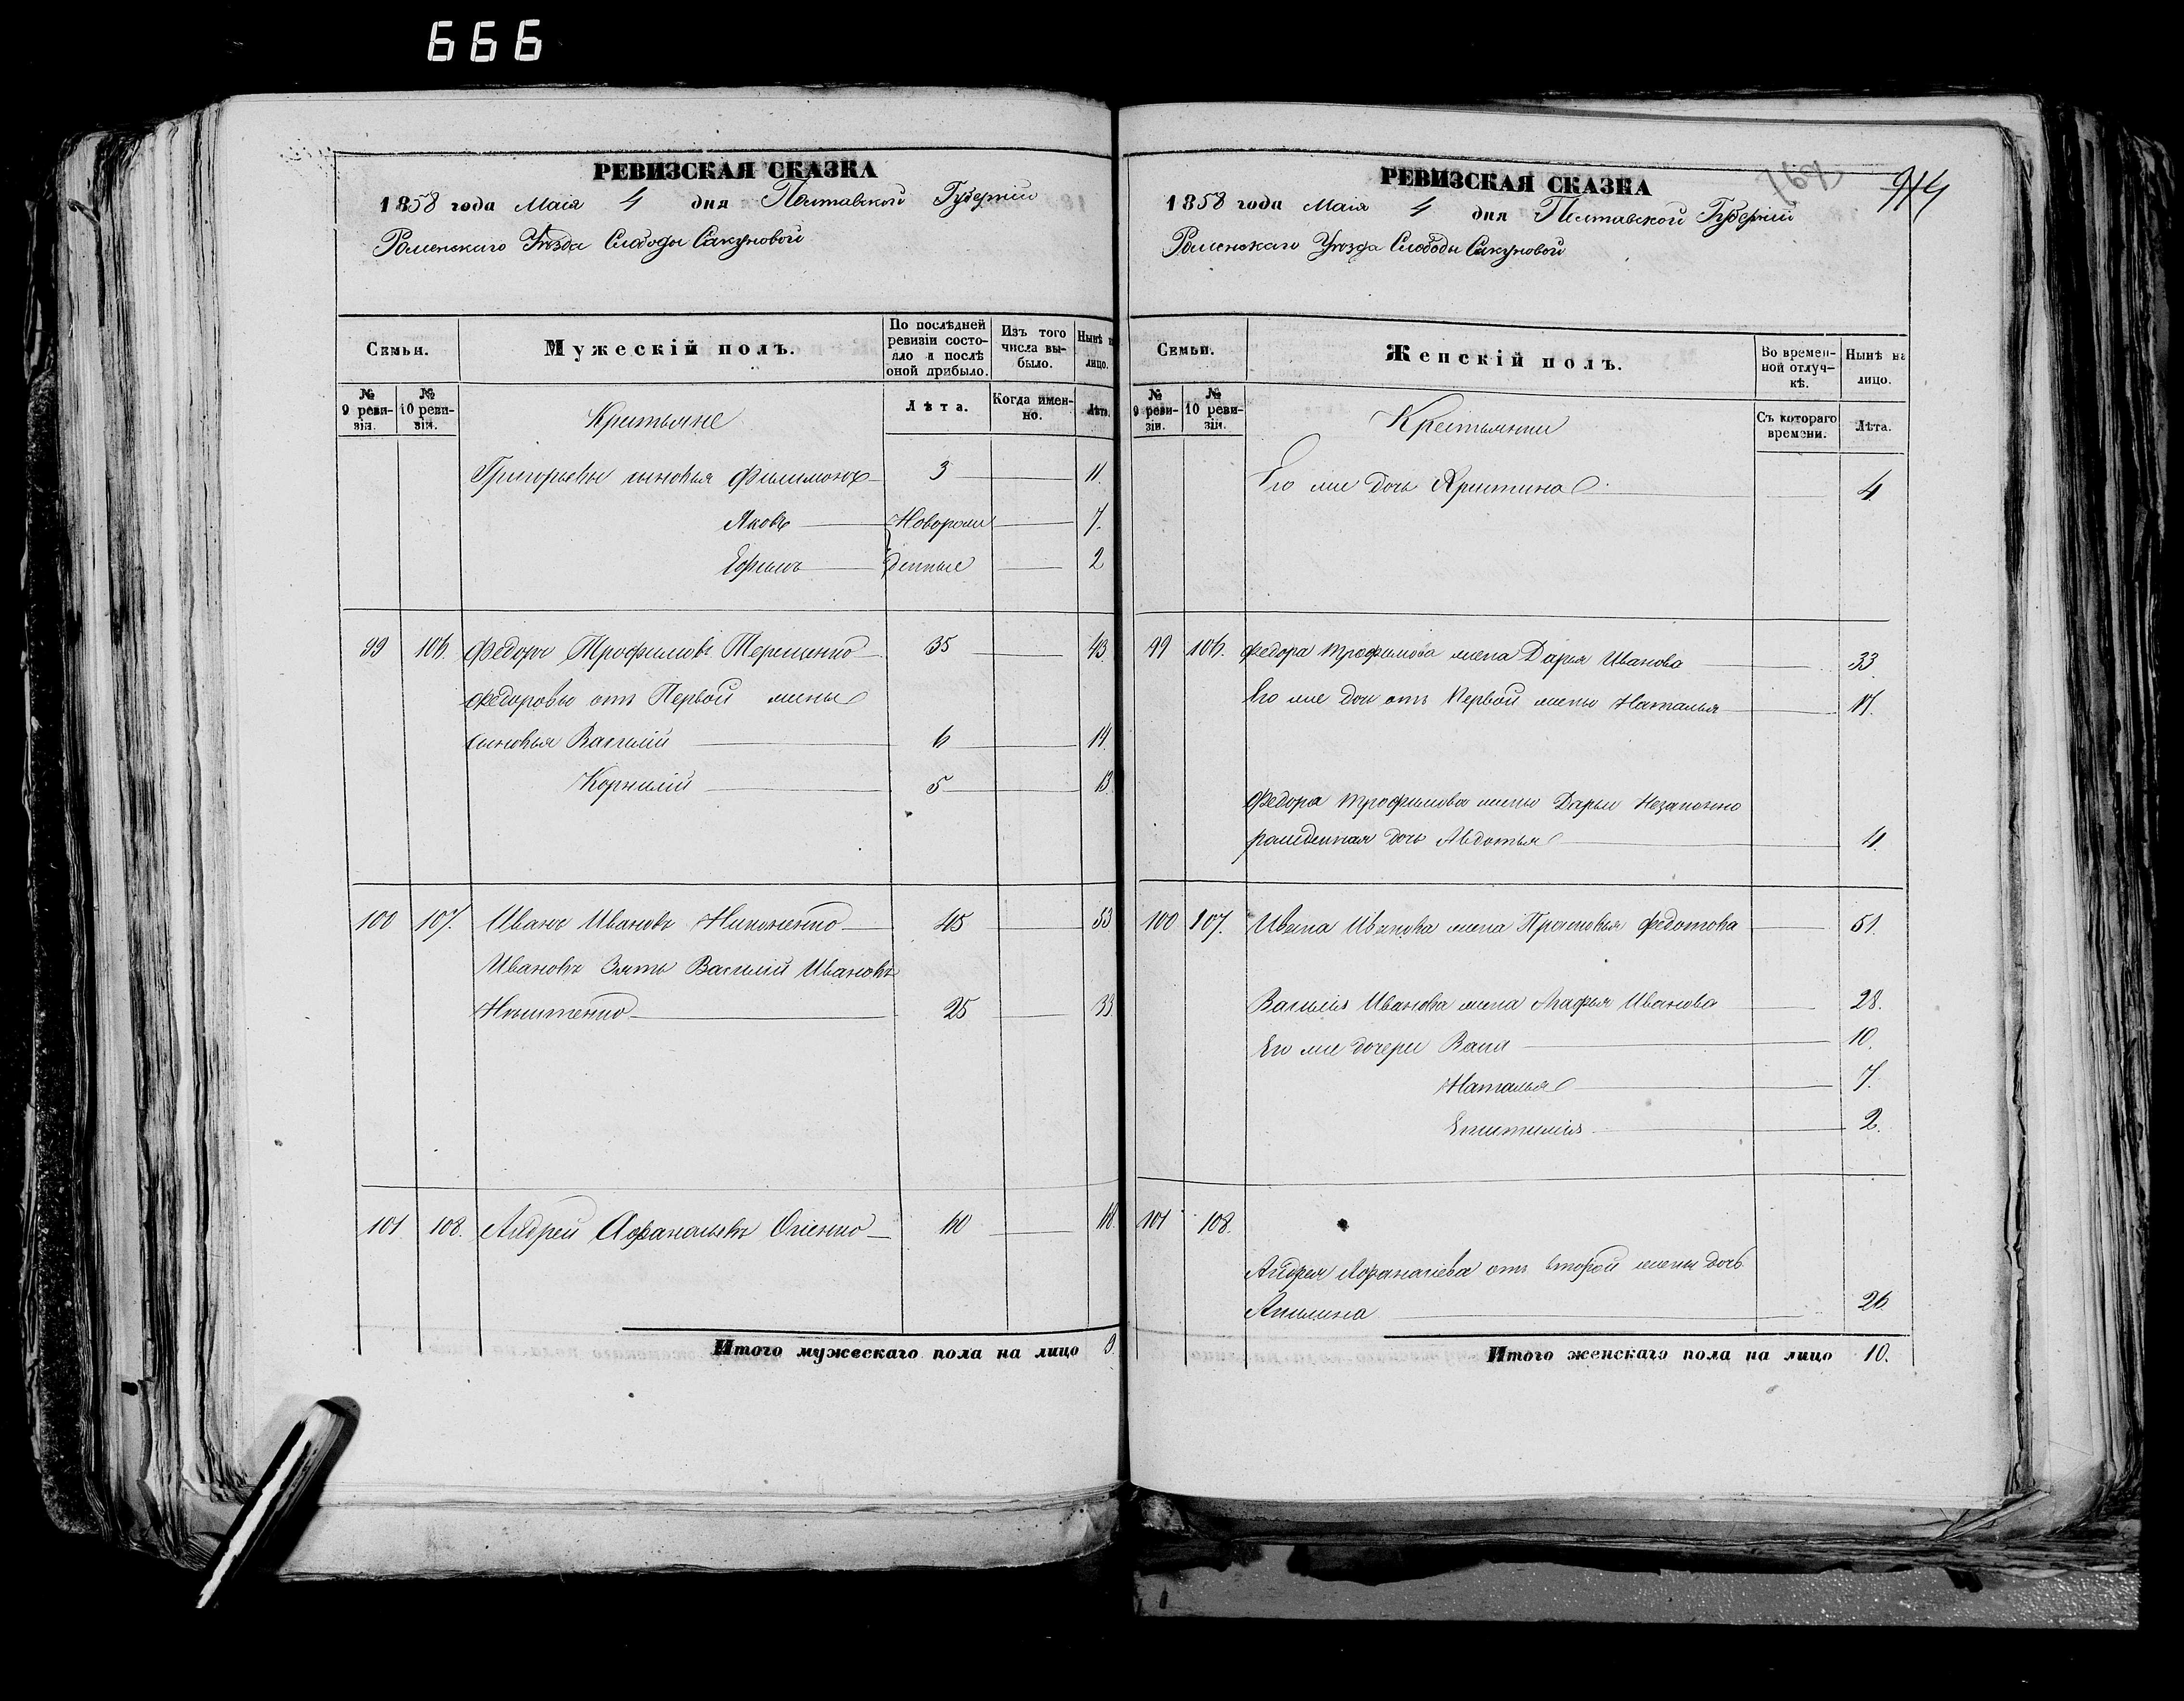 666
РЕВИЗСКАЯ СКАЗКА
1858 года Маія 4 дня Полтавской Губерніи
Роменскаго Уѣзда Слободы Сакуновой
Семьи. Мужескій полъ. По послѣдней ревизіи состояло и послѣ оной прибыло. Изъ того числа выбыло. Нынѣ н лицо.
№ 9 ревизіи. № 10 ревизіи. Крестьяне Лѣта. Когда именно. Лѣта.
Григорьевы сыновья Филимонъ 3 11.
Яковъ Новорож 7.
Ефимъ денные 2
99 106. Федоръ Трофимовъ Терещенко 35 43.
Федоровы отъ Первой жены
сыновья Василій 6 14.
Корнилій 5 13.
100 107. Иванъ Ивановъ 45 53
Ивановъ Зять Василій Ивановъ
25 33
101. 108. Андрей Афанасьевъ 60 68
Итого мужескаго пола на лицо 9.
762 914
РЕВИЗСКАЯ СКАЗКА
1858 года Маія 4 дня Полтавской Губерніи
Роменскаго Уѣзда Слободы Сакуновой
Семьи. Женскій полъ. Во временной отлучкѣ. Нынѣ на лицо.
№ 9 ревизіи. № 10 ревизіи. Крестьянки Съ котораго времени. Лѣта.
Его же дочь Христина 4
99 106. Федора Трофимова жена Дарья Иванова 33.
Его же дочь отъ Первой жены Наталья
Федора Трофимова жены Дарьи Незаконно
рожденная дочь Авдотья
100 107. Ивана Иванова жена Прасковья Федотова 51.
Василія Иванова жена Агафья Иванова 28.
Его же дочери 10.
Наталья 7.
2.
101 108.
Андрея Афанасіева отъ второй жены дочь
Акилина 26
Итого женскаго пола на лицо 10.